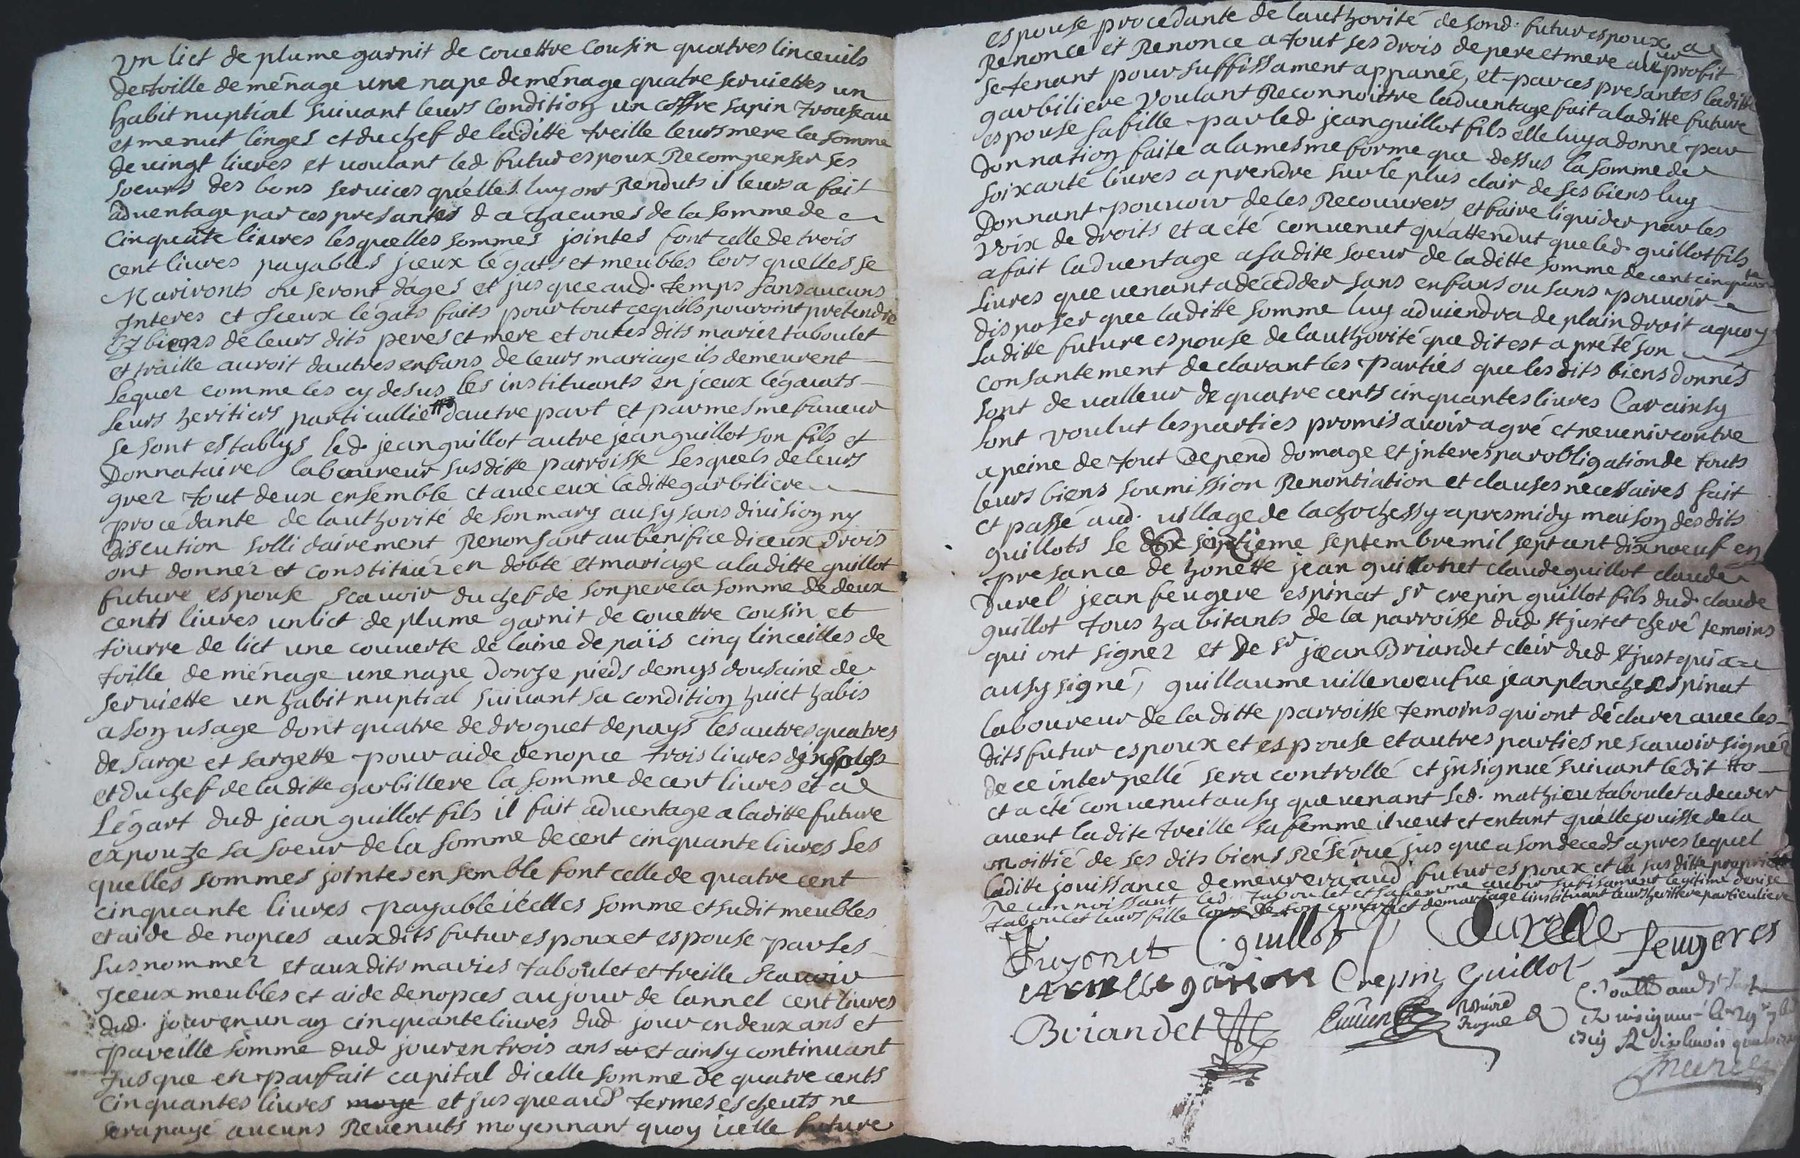 un lict de plume garnit de couettre cousin quatres linceuils
de toille de ménage une nape de ménage quatre serviettes un
habit nuptial suivant leurs condition un coffre sapin trousseau
et menut linges et du chef de laditte treille leurs mere la somme
de vingt livres et voulant led futur espoux Recompenser ses
soeurs des bons services quelles luy ont Renduts il leurs a fait
adventage par ces presantes d a chacunes de la somme de
cinquate livres lesquelles sommes jointes font celle de trois
cent livres payables jceux légats et meubles lors quelles se
Marironts ou seront dages et jus que aud. temps sans aucuns
Interes et Jceux légats faits pour tout ce quils pouroint pretendre
Ez biens de leurs dits peres et mere et ou les dits mariez taboulet
et traille auroit dautres enfans de leurs mariage ils demeurent
lequer comme les cy desus les instituants en jceux légaiats
leurs heritiers particulliers dautre part et par mesme faveur
se sont establys led. jean guillot autre jean guillot son fils et
Donnataire laboureur susditte parroisse lesquels de leurs
grez tout deux ensemble et avec eux laditte garbiliere
procédante de lauthorité de son mary ausy sans division ny
discution sollidairement Renonsant au bénifice diceux drois
ont donner et constituéz en dobte et mariage a laditte guillot
future espouse scavoir du chef de son pere la somme de deux
cents livres un lict de plume garnit de couettre cousin et
tourre de lict une couverte de laine de païs cinq linceilles de
toille de ménage une nape douze pieds demys dousaine de
serviette un habit nuptial suivant sa condition huict habis
a son usage dont quatre de droguet de pays les autres quatres
de sarge et sargette pour aide de nopce trois livres
et du chef de laditte garbillere la somme de cent livres et a
légart dud jean guillot fils il fait adventage a laditte future
expouze sa soeur de la somme de cent cinquante livres les
quelles sommes jointes en semble font celle de quatre cent
cinquante livres payable icelles somme et sudit meubles
et aide de nopces aux dits futur espoux et espouse par les
sus nommez et aux dits mariés taboulet et treille scavoir
Jceux meubles et aide de nopces au jour de lannel cent livres
dud. jour en un an cinquante livres dud jour en deux ans et
pareille somme dud jour en trois ans et ainsy continuant
Jusque en parfait capital dicelle somme de quatre cents
cinquantes livres et jus que aud termes escheuts ne
sera payé aucuns Revenuts moyennant quoy icelle future
espouse procedante de lauthorité de sond. futur espoux a
Renoncé et Renonce a tout ses drois de pere et mere au profit
se tenant pour suffissament appanée, et par ces presantes laditte
garbiliere voulant Reconnoittre ladventage fait a laditte future
espouse sa fille par led jean guillot fils elle luy a donné par
Donnation faite a la mesme forme que dessus la somme de
soixante livres a prendre sur le plus clair de ses biens luy
Donnant pouvoir de les Recouvrers et faire liquider par les
voix de droits et a été convenut qu'attendut que led. guillot fils
a fait ladventage a sa dite soeur de laditte somme de cent cinquante
livres que venant a décédder sans enfans ou sans pouvoir
disposer que laditte somme luy adviendra de plain droit a quoy
laditte future espouse de lauthorité que dit est a preté son
consantement declarant les parties que les dits biens donnés
sont de valleur de quatre cents cinquantes livres Car ainsy
sont voulut les parties promis avoir agré et ne venir contre
a peine de tout depend domage et jnteres par obligation de touts
leurs biens soumission Renontiation et clauses necessaires fait
et passé aud. village de lachochessy apres midy maison des dits
guillots le dix septieme septembre mil sept ant dix noeuf en
presance de honette jean guillot et claude guillot claude
Durel jean feugere espinat sr crepin guillot fils dud. claude
guillot tous habitants de la parroisse dud st just et cheré temoins
qui ont signez et de sr jean Briandet clair dud st just qui a
ausy signé, guillaume villenoeufve jean planche espinat
laboureur de laditte parroisse temoins qui ont déclarer avec les
dits futur espoux et espouse et autres parties ne scavoir signér
de ce interpellé sera controllé et jnsignué suivant ledit
et a été convenut ausy que venant led. mathieu taboulet a deceder
avent ladite treille sa femme il veut et entant quelle jouisse de la
moittié de ses dits biens Réservé jus que a son decedz apres lequel
laditte jouissance demeurera aud. futur espoux et la sus ditte propriette
Reconnoissant led. taboulet et sa femme avoir sufisament légitime denise
taboulet leurs fille contract de mariage linstituant leurs herittiere particuliere
fuyonet C guillot Durelle feugeres
Crepin Guillot
Briandet